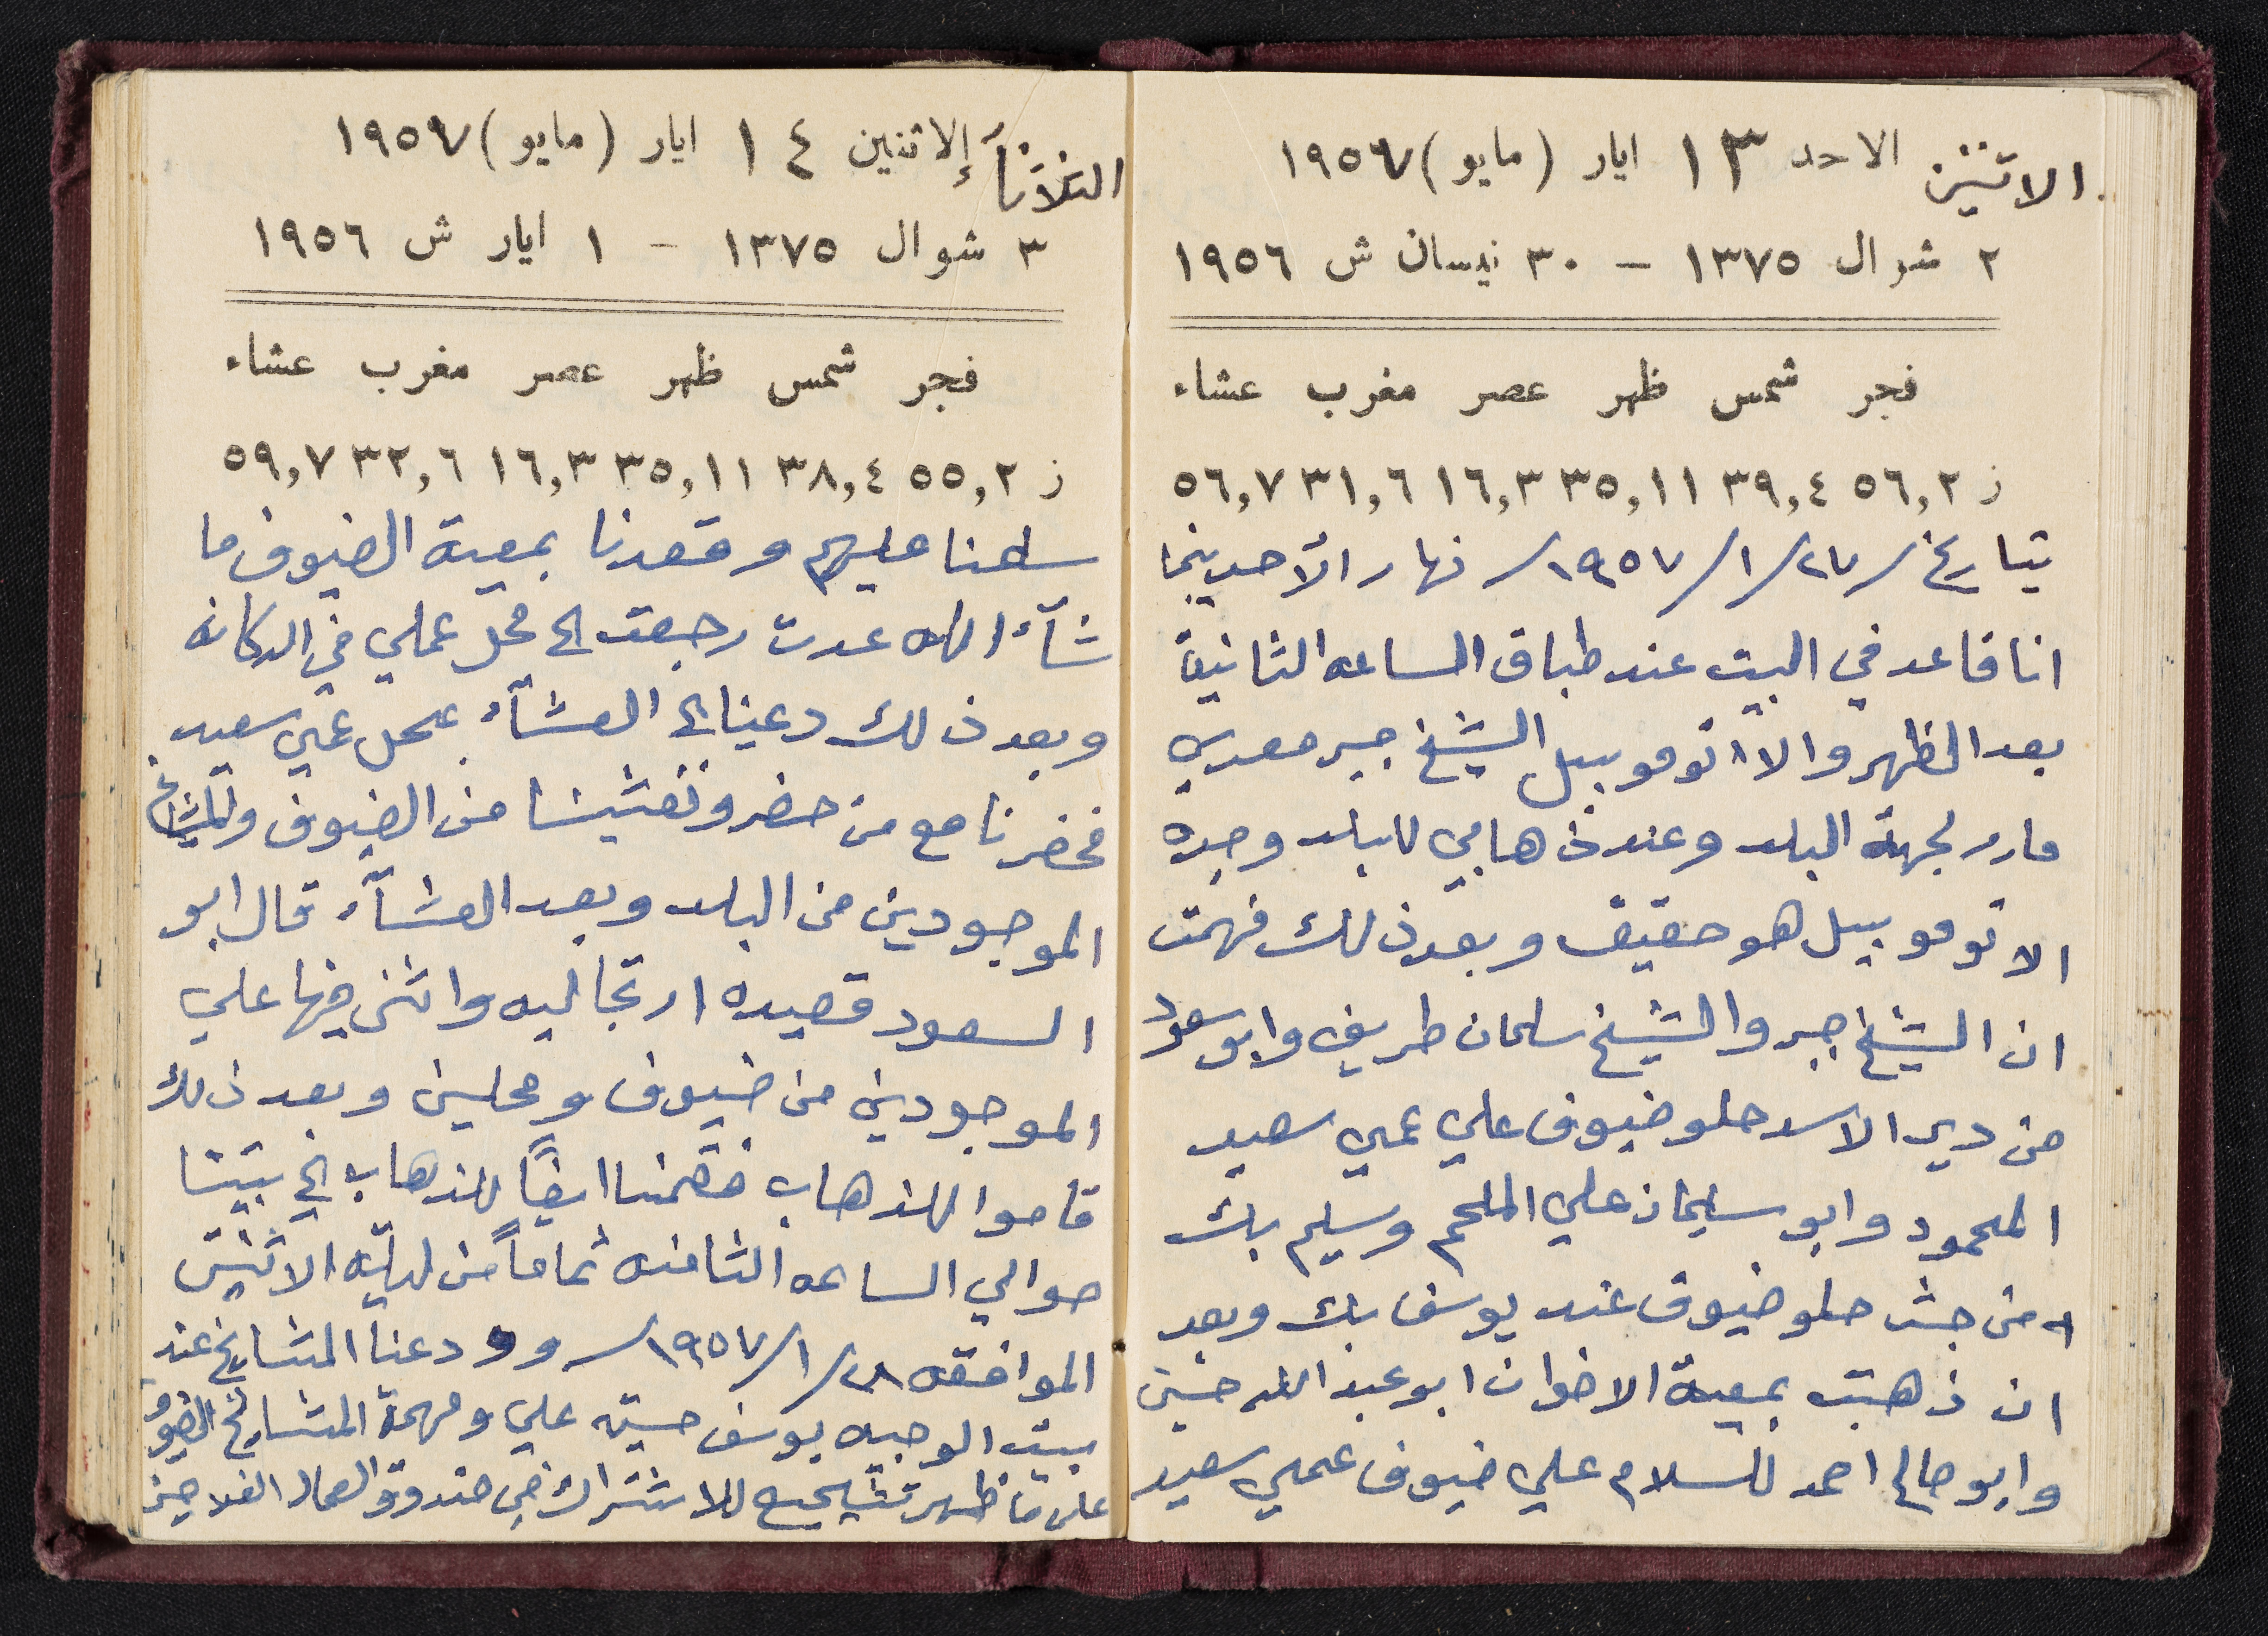 الاثنين الاحد ١٣ ايار (مايو) ١٩٥٧
٢ شوال ١٣٧٥ – ٣٠ نيسان ش ١٩٥٦
فجر شمس ظهر عصر مغرب عشاء
ز ٥٦,٢ ٣٩,٤ ٣٥,١١ ١٦,٣ ٣١,٦ ٥٦,٧
بتاريخ /٢٧/١/١٩٥٧/ نهار الأحد بينما
انا قاعد في البيت عند طباق الساعه الثانية
بعد الظهر والا اتوموبيل الشيخ جبر معدي
مارر لجهة البلد وعند ذهابي للبلد وجده
الاتوموبيل هو حقيقه وبعد ذلك فهمت
ان الشيخ جبر والشيخ سلمان طريف وابو سعود
من دير الاسد حلو ضيوف علي عمي سعيد
المحمود وابو سليمان علي الملحم وسليم بك
من جث حلو ضيوف عند يوسف بك وبعد
ان ذهبت بمعية الاخوان ابو عبدالله حسين
وابو صالح احمد للسلام علي ضيوف عمي سعيد
الثلاثآء الاثنين ١٤ ايار (مايو) ١٩٥٧
٣ شوال ١٣٧٥ – ١ ايار ش ١٩٥٦
فجر شمس ظهر عصر مغرب عشاء
ز ٥٥,٢ ٣٨,٤ ٣٥,١١ ١٦,٣ ٣٢,٦ ٥٩,٧
سلمنا عليهم وقعدنا بمعية الضيوف ما
شآء الله عدت رجعت الى محل عملي في الدكانه
وبعد ذلك دعينا الى العشآء بمحل عمي سعيد
فحضرنا مع من حضر وتعشينا من الضيوف والمشايخ
الموجودين من البلد وبعد العشآء قال ابو
السعود قصيده ارتجاليه واثنى فيها علي
الموجودين من ضيوف ومحلين وبعد ذلك
قاموا للذهاب فقمنا ايضاً للذهاب الى بيتنا
حوالي الساعه الثامنه تماماً من ليلة الاثنين
الموافقه ٢٨/١/١٩٥٧/ وودعنا المشايخ عند
بيت الوجيه يوسف حسين علي ومهمة المشايخ الضيوف
على ما ظهر تشجيع للاشتراك في صندوق العمال الفلاحين